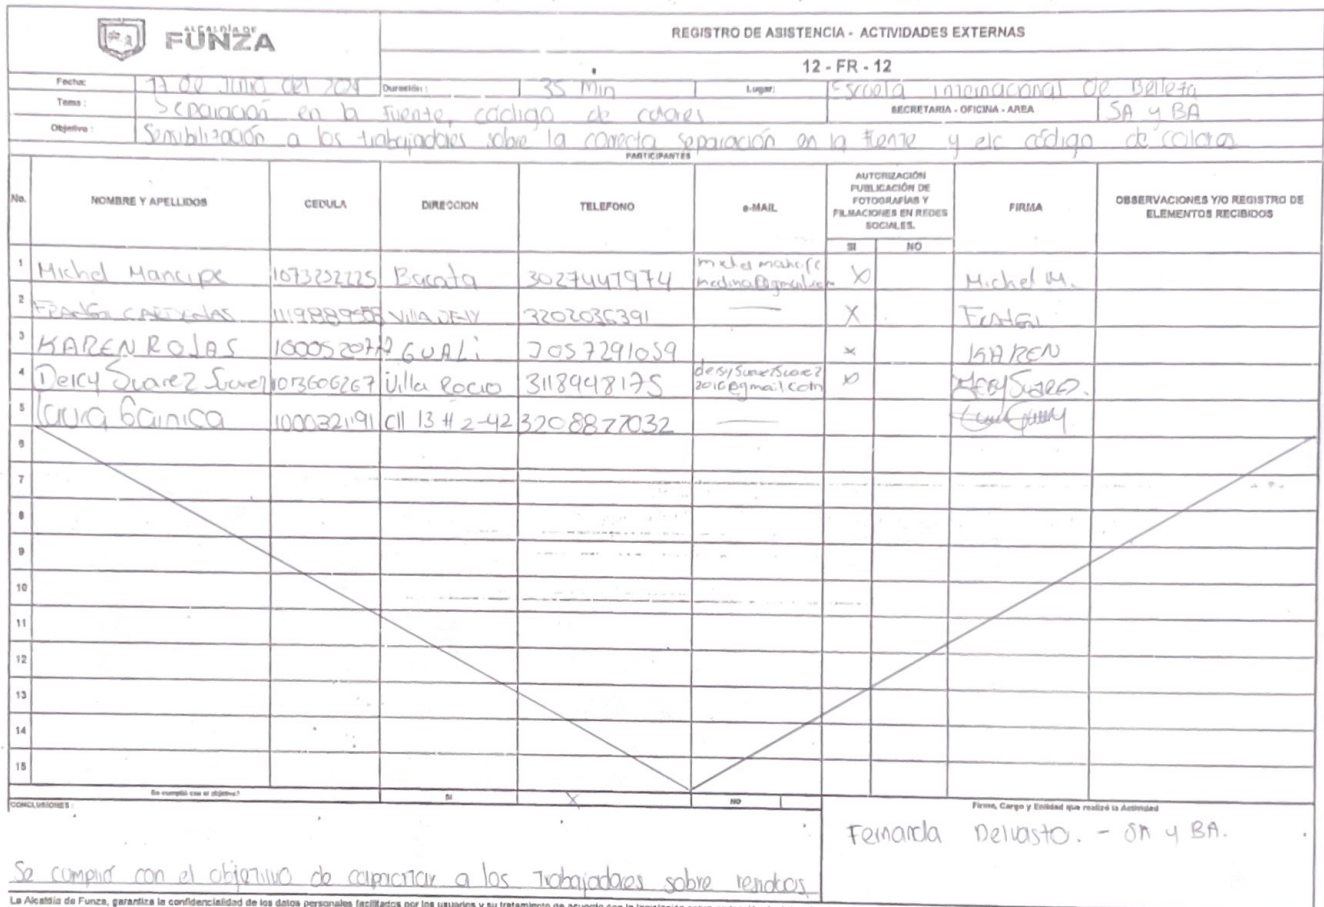 ALCALDÍA DE
FUNZA
REGISTRO DE ASISTENCIA - ACTIVIDADES EXTERNAS
12 - FR - 12
Fecha: 17 de Junio del 2024 Duración : 35 Min Lugar: Escuela internacional de Belleza
Tema : Separación en la fuente, código de colores SECRETARIA - OFICINA - AREA SA y BA
Objetivo : Sensibilización a los trabajadores sobre la correcta separación en la fuente y elc código de colores
PARTICIPANTES
No. NOMBRE Y APELLIDOS CEDULA DIRECCION TELEFONO e-MAIL AUTORIZACIÓN PUBLICACIÓN DE FOTOGRAFÍAS Y FILMACIONES EN REDES SOCIALES. FIRMA OBSERVACIONES Y/O REGISTRO DE ELEMENTOS RECIBIDOS
SI NO
1 Michel Mancipe 1073252225 Bacata 3027447974 X Michel M.
2 VILLA 3202036391 — X
3 KAREN ROJAS GUALi 3057291059 x KAREN
4 Deicy Suarez Suarez 1073606267 Villa Rocio 3118948175 deisySuarezSuarez 2016@gmail.com X
5 Laura 1000321191 Cll 13 # 2-42 3208877032 —
6
7
8
9
10
11
12
13
14
15
Se cumplió con el objetivo? SI X NO
CONCLUSIONES :
Firma, Cargo y Entidad que realizó la Actividad
Fernanda Delvasto. - SA y BA.
Se cumplió con el objetivo de capacitar a los trabajadores sobre
La Alcaldía de Funza, garantiza la confidencialidad de los datos personales facilitados por los usuarios y su tratamiento de acuerdo con la legislación